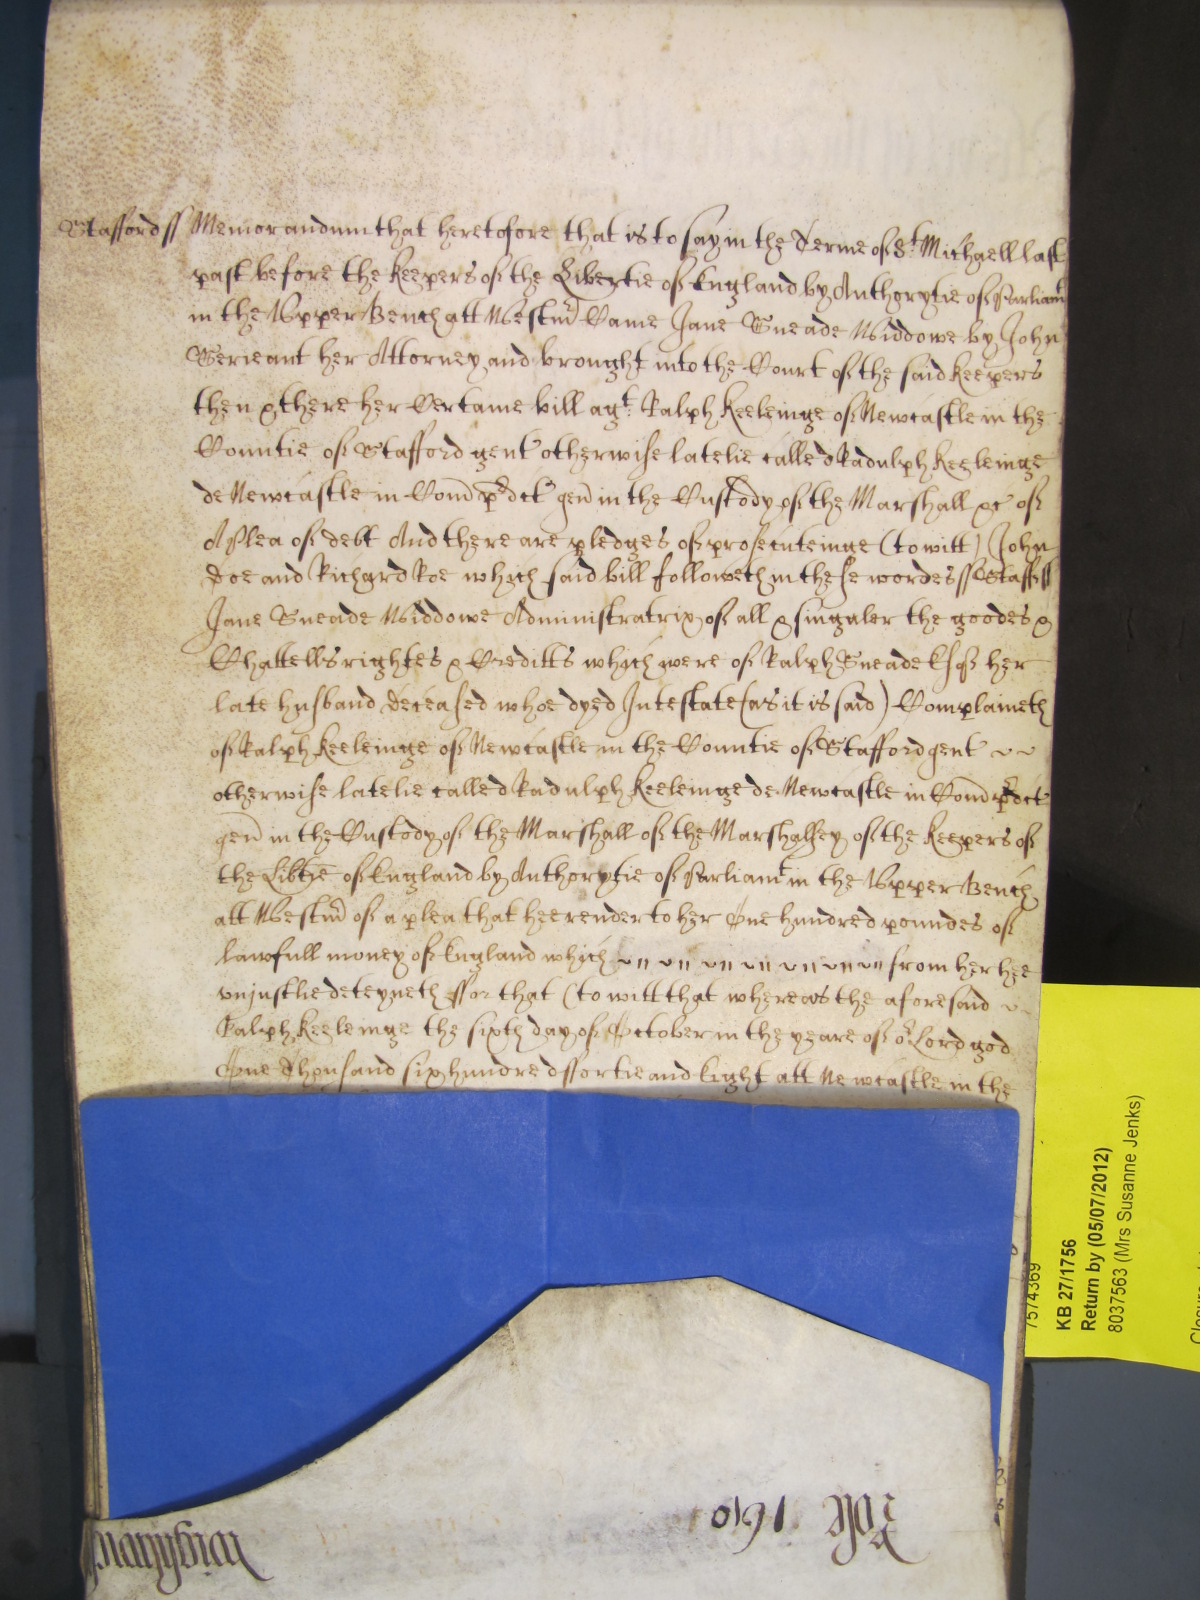 Stafford ss Memorandum that heretofore that is to say in the Terme of St Michaell last
past before the keepers of the Libertie of England by Authorytie of Parliamt
in the Upper Bench att Westmr Came Jane Sneade Widdowe by John
Serieant her Attorney and brought into the Court of the said keepers
then & there her Certaine bill agt Ralph Keeleinge of Newcastle in the
Countie of Stafford gent otherwise latelie called Radulph Keeleinge
de Newcastle in Com pdct gen in the Custody of the Marshall &c of
A Plea of debt And there are pledges of prosecuteinge (to witt) John
Doe and Richard Roe which said bill followeth in these wordes ss Staff ss
Jane Sneade Widdowe Administratrix of all & singuler the goodes &
Chattells rightes & Creditts which were of Ralph Sneade Esq her
late husband deceased whoe dyed Intestate (as it is said) Complaineth
of Ralph Keeleinge of Newcastle in the Countie of Stafford gent
otherwise latelie called Radulph Keeleinge de Newcastle in Com pdct
gen in the Custody of the Marshall of the Marshalsey of the keepers of
the Libtie of England by Authorytie of Parliamt in the Upper Bench
att Westmr of a plea that hee render to her One hundred poundes of
lawfull money of England which from her hee
unjustlie deteyneth ffor that (to witt that whereas the aforesaid
Ralph Keeleinge the sixth day of October in the yeare of or Lord god
One Thousand six hundred ffortie and Eight att Newcastle in the
7574369
KB 27/1756
Return by (05/07/2012)
8037563 (Mrs Susanne Jenks)
Rolle 1610